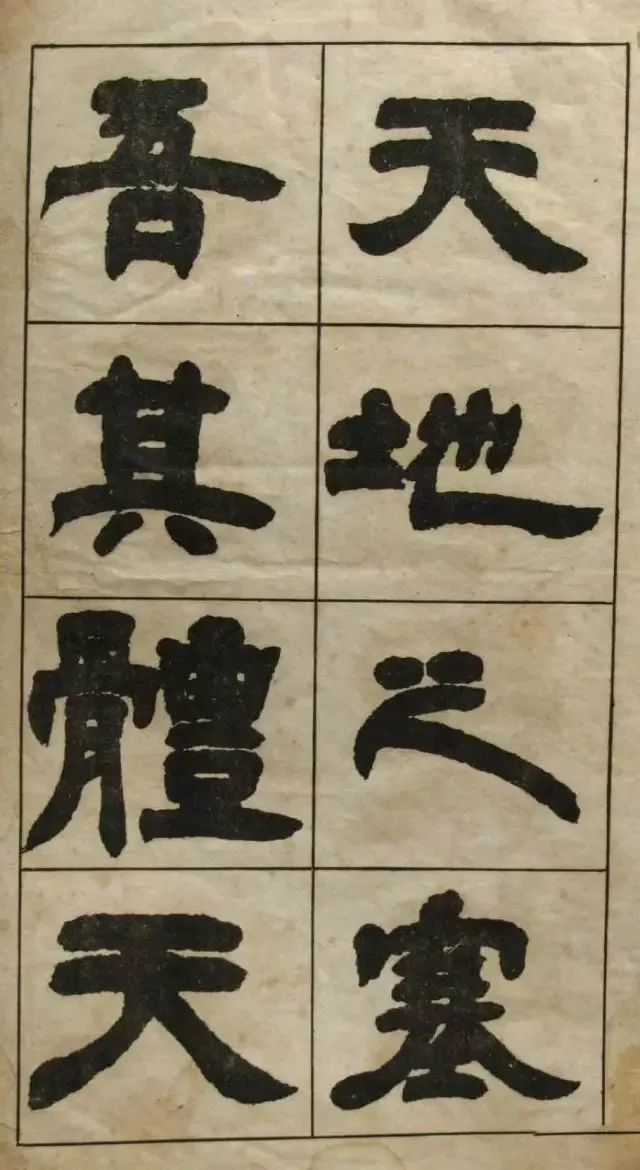 天地之塞
吾其體天